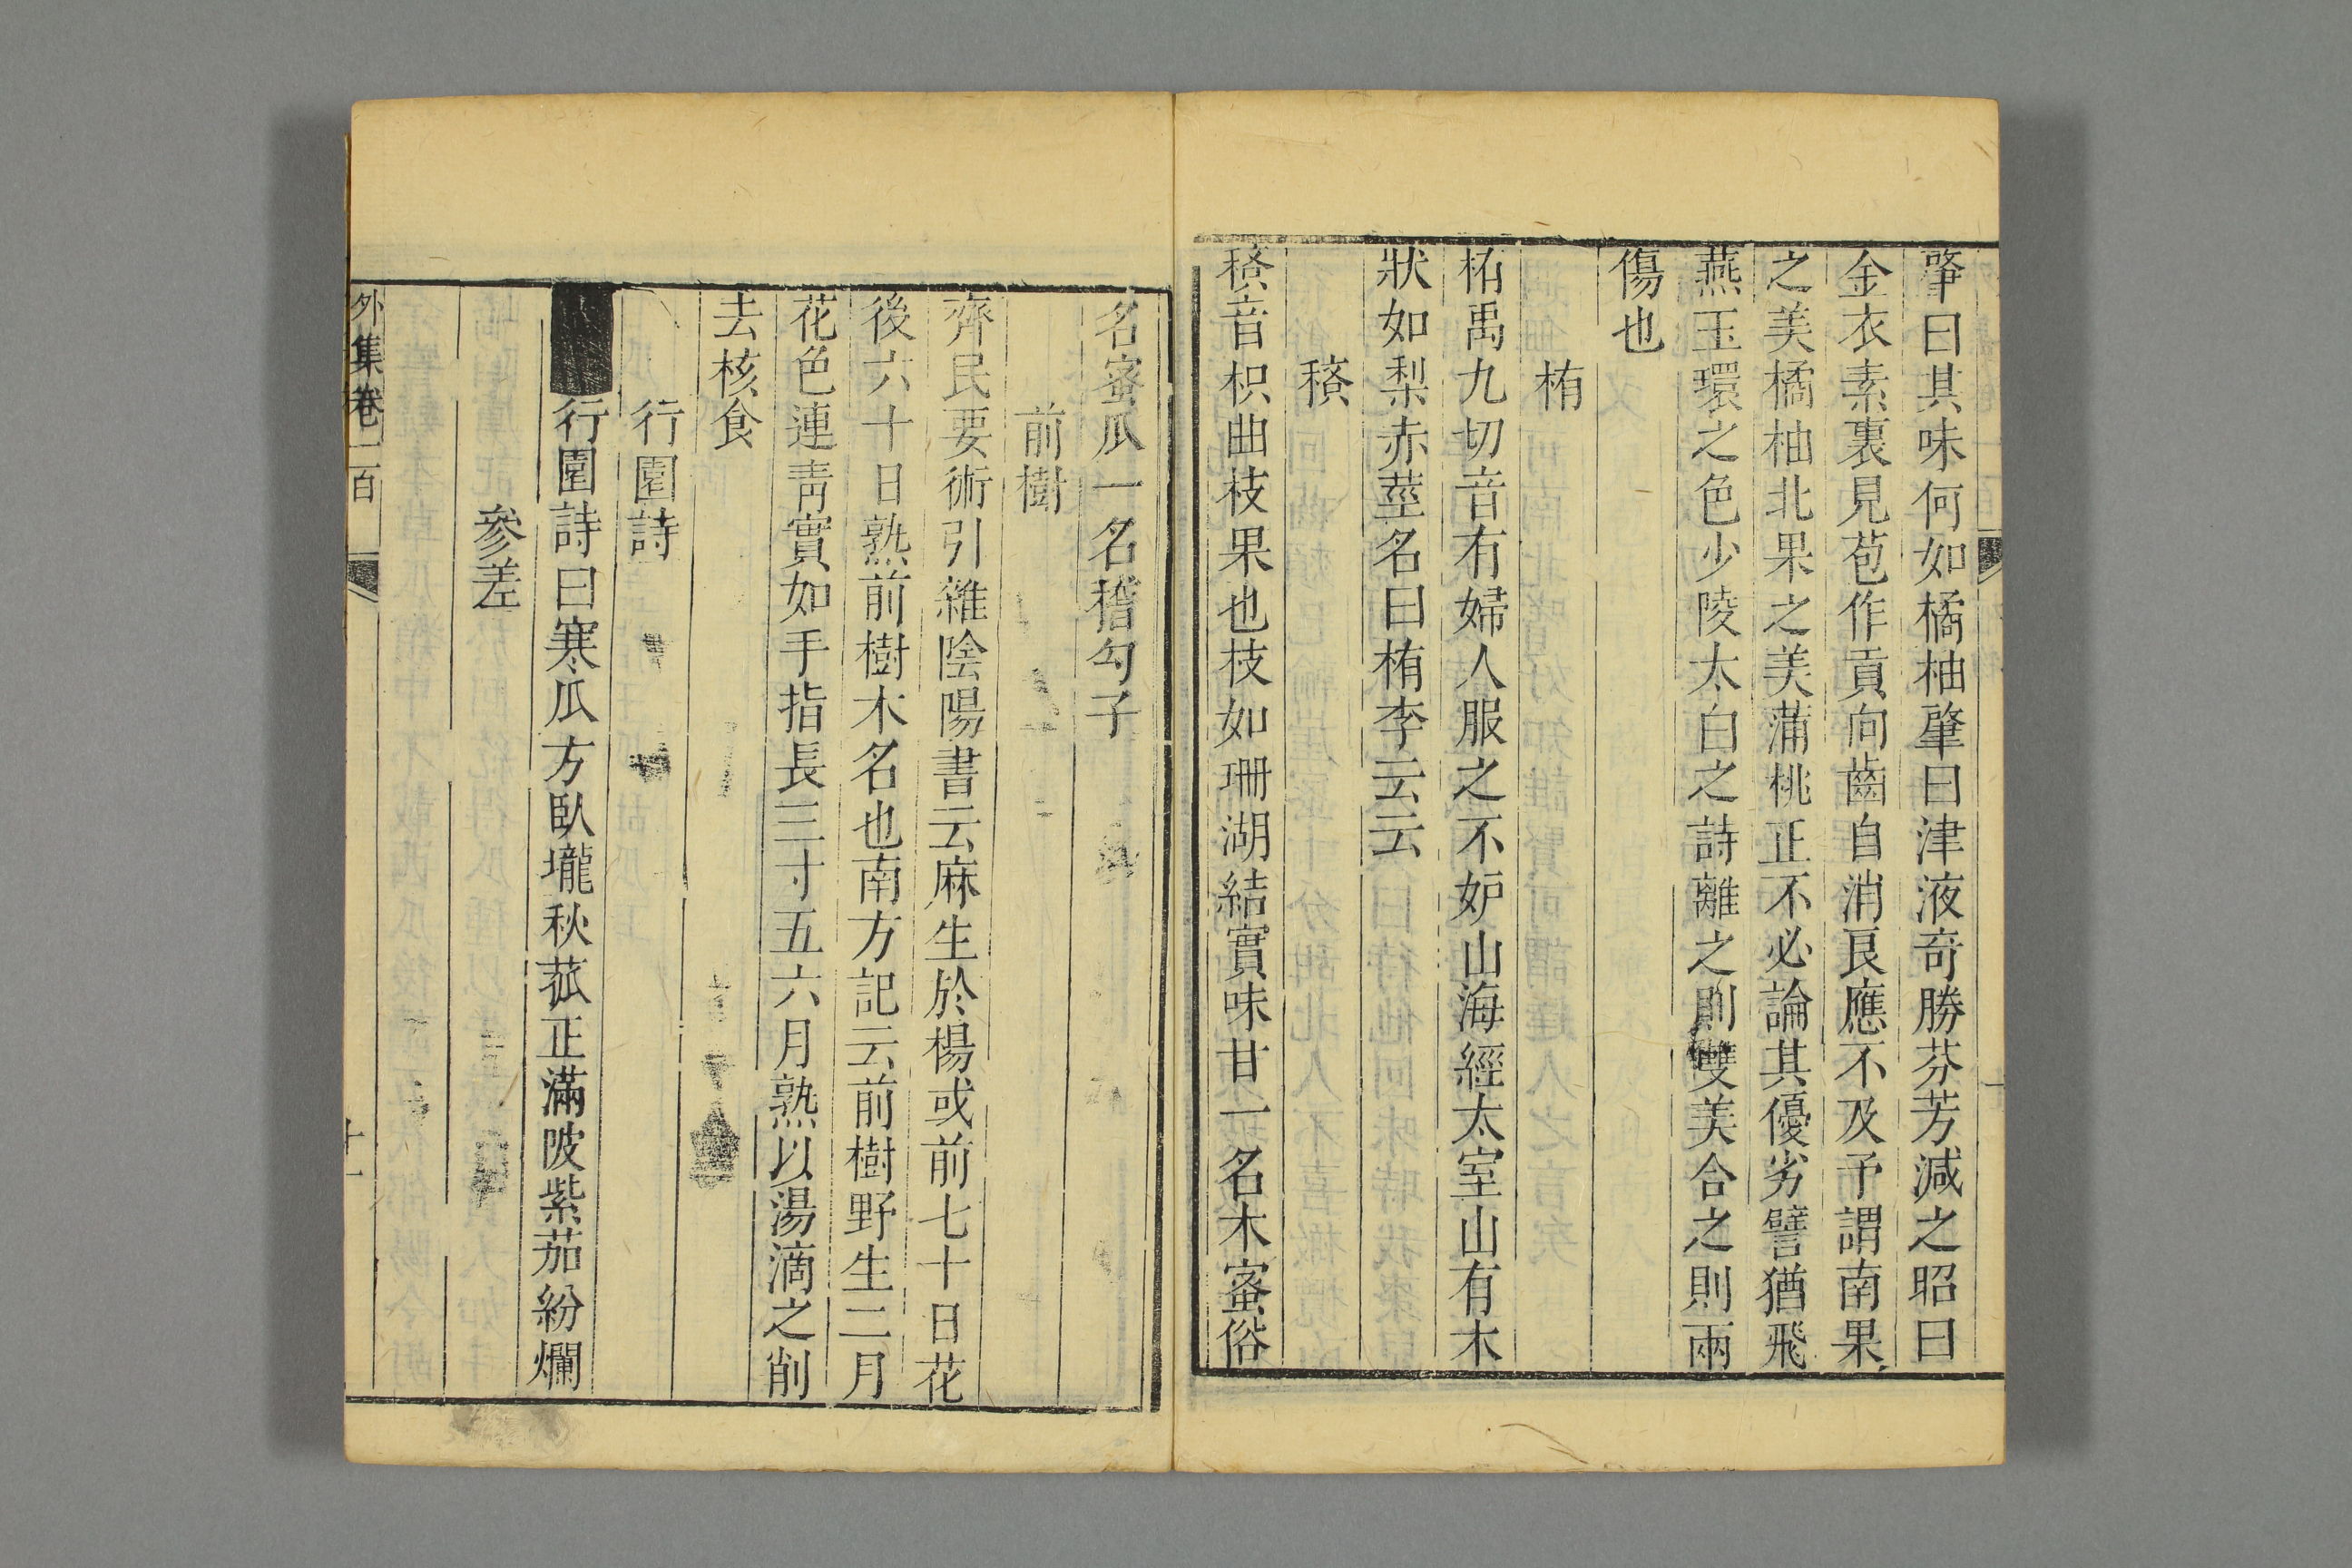 肇曰其味何如橘柚肇曰津液奇勝芬芳減之昭曰
金衣素裏見苞作貢向齒自消良應不及予謂南果
之美橘柚北果之美蒲桃正不必論其優劣譬猶飛
燕玉環之色少陵太白之詩離之則雙美合之則兩
傷也
栯
栯禹九切音有婦人服之不妒山海經太室山有木
狀如梨赤莖名曰栯李云云
𥠻
𥠻音枳曲枝果也枝如珊湖結實味甘一名木蜜俗
名蜜瓜一名稽勾子
前樹
齊民要術引雜陰陽書云麻生於楊或前七十日花
後六十日熟前樹木名也南方記云前樹野生二月
花色連靑實如手指長三寸五六月熟以湯滴之削
去核食
行園詩
行園詩曰寒瓜方臥壠秋菰正滿陂紫茄紛爛
參差
外集卷一百
十一